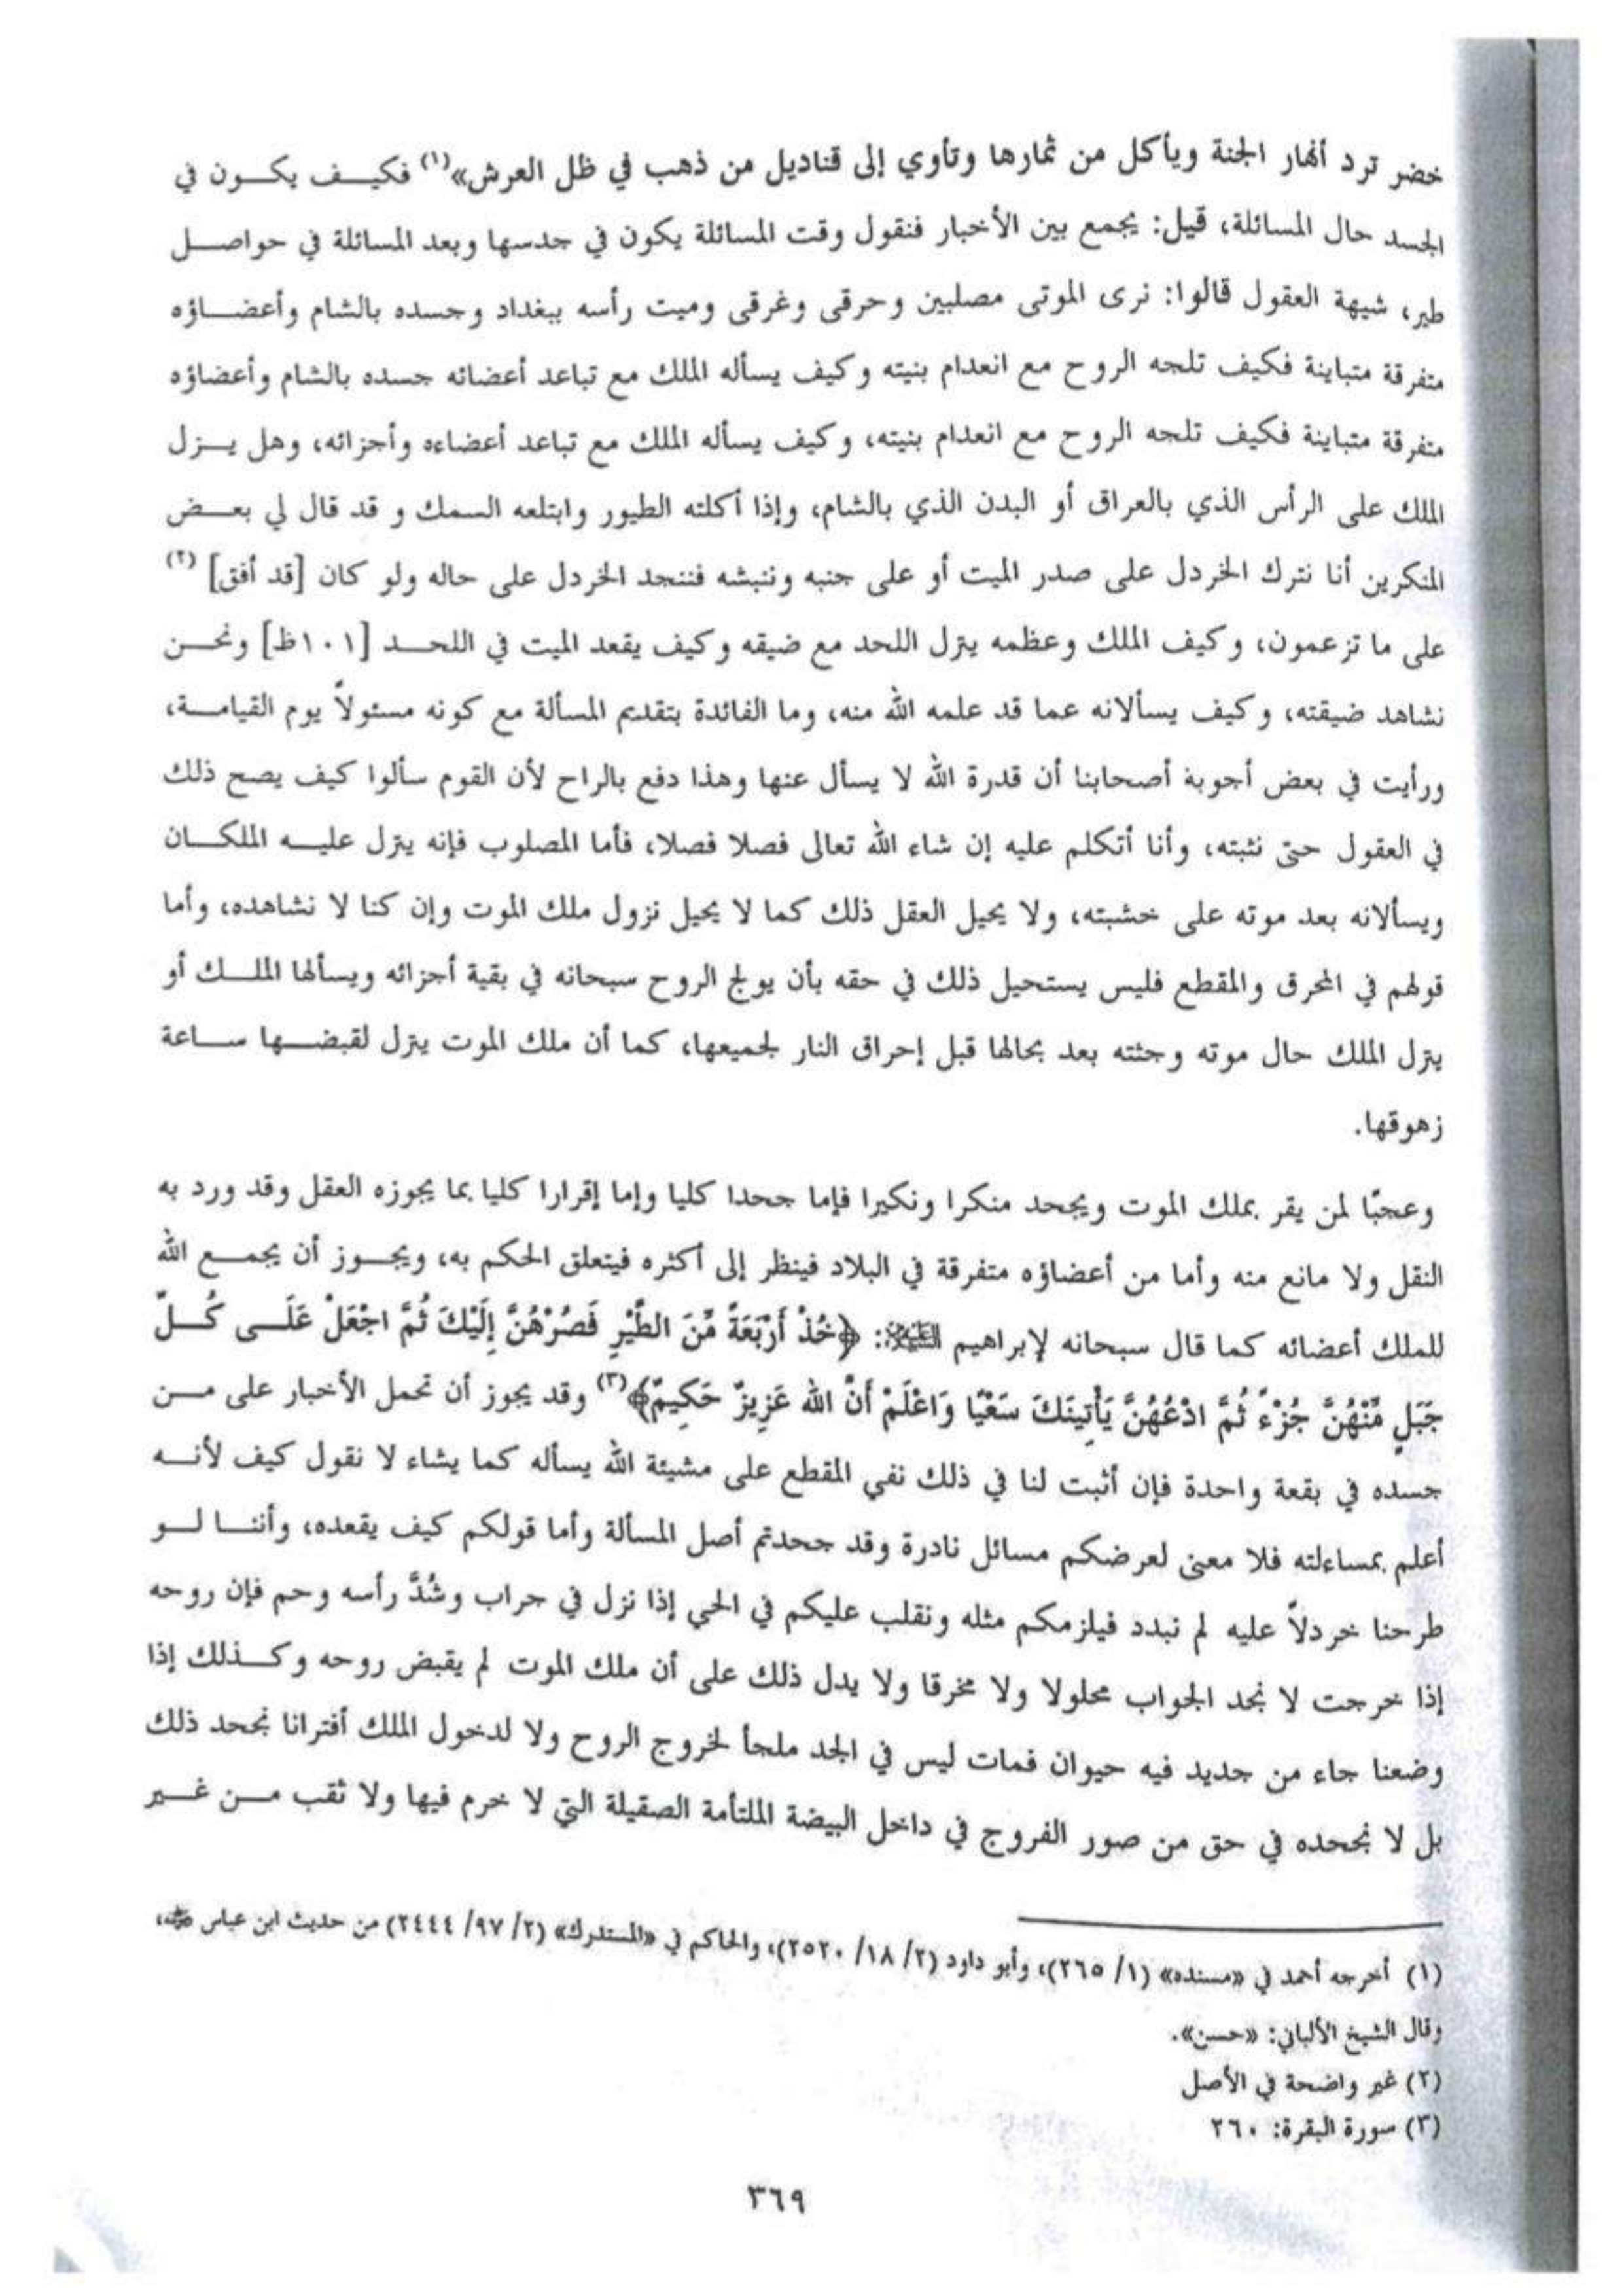 خضر ترد أنهار الجنة ويأكل من ثمارها وتأوي إلى قناديل من ذهب في ظل العرش»(١) فكيف يكون في
الجسد حال المسائلة، قيل: يجمع بين الأخبار فنقول وقت المسائلة يكون في جدسها وبعد المسائلة في حواصل
طير، شبهة العقول قالوا: نرى الموتى مصلبين وحرقى وغرقى وميت رأسه ببغداد وجسده بالشام وأعضاؤه
متفرقة متباينة فكيف تلجه الروح مع انعدام بنيته وكيف يسأله الملك مع تباعد أعضائه جسده بالشام وأعضاؤه
متفرقة متباينة فكيف تلجه الروح مع انعدام بنيته، وكيف يسأله الملك مع تباعد أعضاءه وأجزائه، وهل يزل
الملك على الرأس الذي بالعراق أو البدن الذي بالشام، وإذا أكلته الطيور وابتلعه السمك و قد قال لي بعض
المنكرين أنا نترك الخردل على صدر الميت أو على جنبه وننبشه فنجد الخردل على حاله ولو كان [قد أفق] (٢)
على ما تزعمون، وكيف الملك وعظمه يترل اللحد مع ضيقه وكيف يقعد الميت في اللحد [١٠١ظ] ونحن
نشاهد ضيقته، وكيف يسألانه عما قد علمه الله منه، وما الفائدة بتقديم المسألة مع كونه مسئولاً يوم القيامة،
ورأيت في بعض أجوبة أصحابنا أن قدرة الله لا يسأل عنها وهذا دفع بالراح لأن القوم سألوا كيف يصح ذلك
في العقول حتى نثبته، وأنا أتكلم عليه إن شاء الله تعالى فصلا فصلا، فأما المصلوب فإنه يترل عليه الملكان
ويسألانه بعد موته على خشبته، ولا يحيل العقل ذلك كما لا يحيل نزول ملك الموت وإن كنا لا نشاهده، وأما
قولهم في المحرق والمقطع فليس يستحيل ذلك في حقه بأن يولج الروح سبحانه في بقية أجزائه ويسألها الملك أو
يترل الملك حال موته وجثته بعد بحالها قبل إحراق النار لجميعها، كما أن ملك الموت يترل لقبضها ساعة
زهوقها.
وعجبًا لمن يقر بملك الموت ويجحد منكرا ونكيرا فإما جحدا كليا وإما إقرارا كليا بما يجوزه العقل وقد ورد به
النقل ولا مانع منه وأما من أعضاؤه متفرقة في البلاد فينظر إلى أكثره فيتعلق الحكم به، ويجوز أن يجمع الله
للملك أعضائه كما قال سبحانه لإبراهيم العَلِيْهِ: ﴿خُذْ أَرْبَعَةً مِّنَ الطَّيْرِ فَصُرْهُنَّ إِلَيْكَ ثُمَّ اجْعَلْ عَلَى كُلِّ
جَبَلٍ مِّنْهُنَّ جُزْءً ثُمَّ ادْعُهُنَّ يَأْتِينَكَ سَعْيًا وَاعْلَمْ أَنَّ اللهَ عَزِيزٌ حَكِيمٌ﴾(٣) وقد يجوز أن تحمل الأخبار على من
جسده في بقعة واحدة فإن أثبت لنا في ذلك نفي المقطع على مشيئة الله يسأله كما يشاء لا نقول كيف لأنه
أعلم بمساءلته فلا معنى لعرضكم مسائل نادرة وقد جحدتم أصل المسألة وأما قولكم كيف يقعده، وأننا لو
طرحنا خردلاً عليه لم نبدد فيلزمكم مثله ونقلب عليكم في الحي إذا نزل في جراب وشُدَّ رأسه وحم فإن روحه
إذا خرجت لا نجد الجواب محلولا ولا مخرقا ولا يدل ذلك على أن ملك الموت لم يقبض روحه وكذلك إذا
وضعنا جاء من جديد فيه حيوان فمات ليس في الجد ملجأ لخروج الروح ولا لدخول الملك أفترانا نجحد ذلك
بل لا نجحده في حق من صور الفروج في داخل البيضة الملتأمة الصقيلة التي لا خرم فيها ولا ثقب من غير
(١) أخرجه أحمد في «مسنده» (١/ ٢٦٥)، وأبو داود (٢/ ١٨/ ٢٥٢٠)، والحاكم في «المستدرك» (٢/ ٩٧/ ٢٤٤٤) من حديث ابن عباس ﷺ،
وقال الشيخ الألباني: «حسن».
(٢) غير واضحة في الأصل
(٣) سورة البقرة: ٢٦٠
٣٦٩